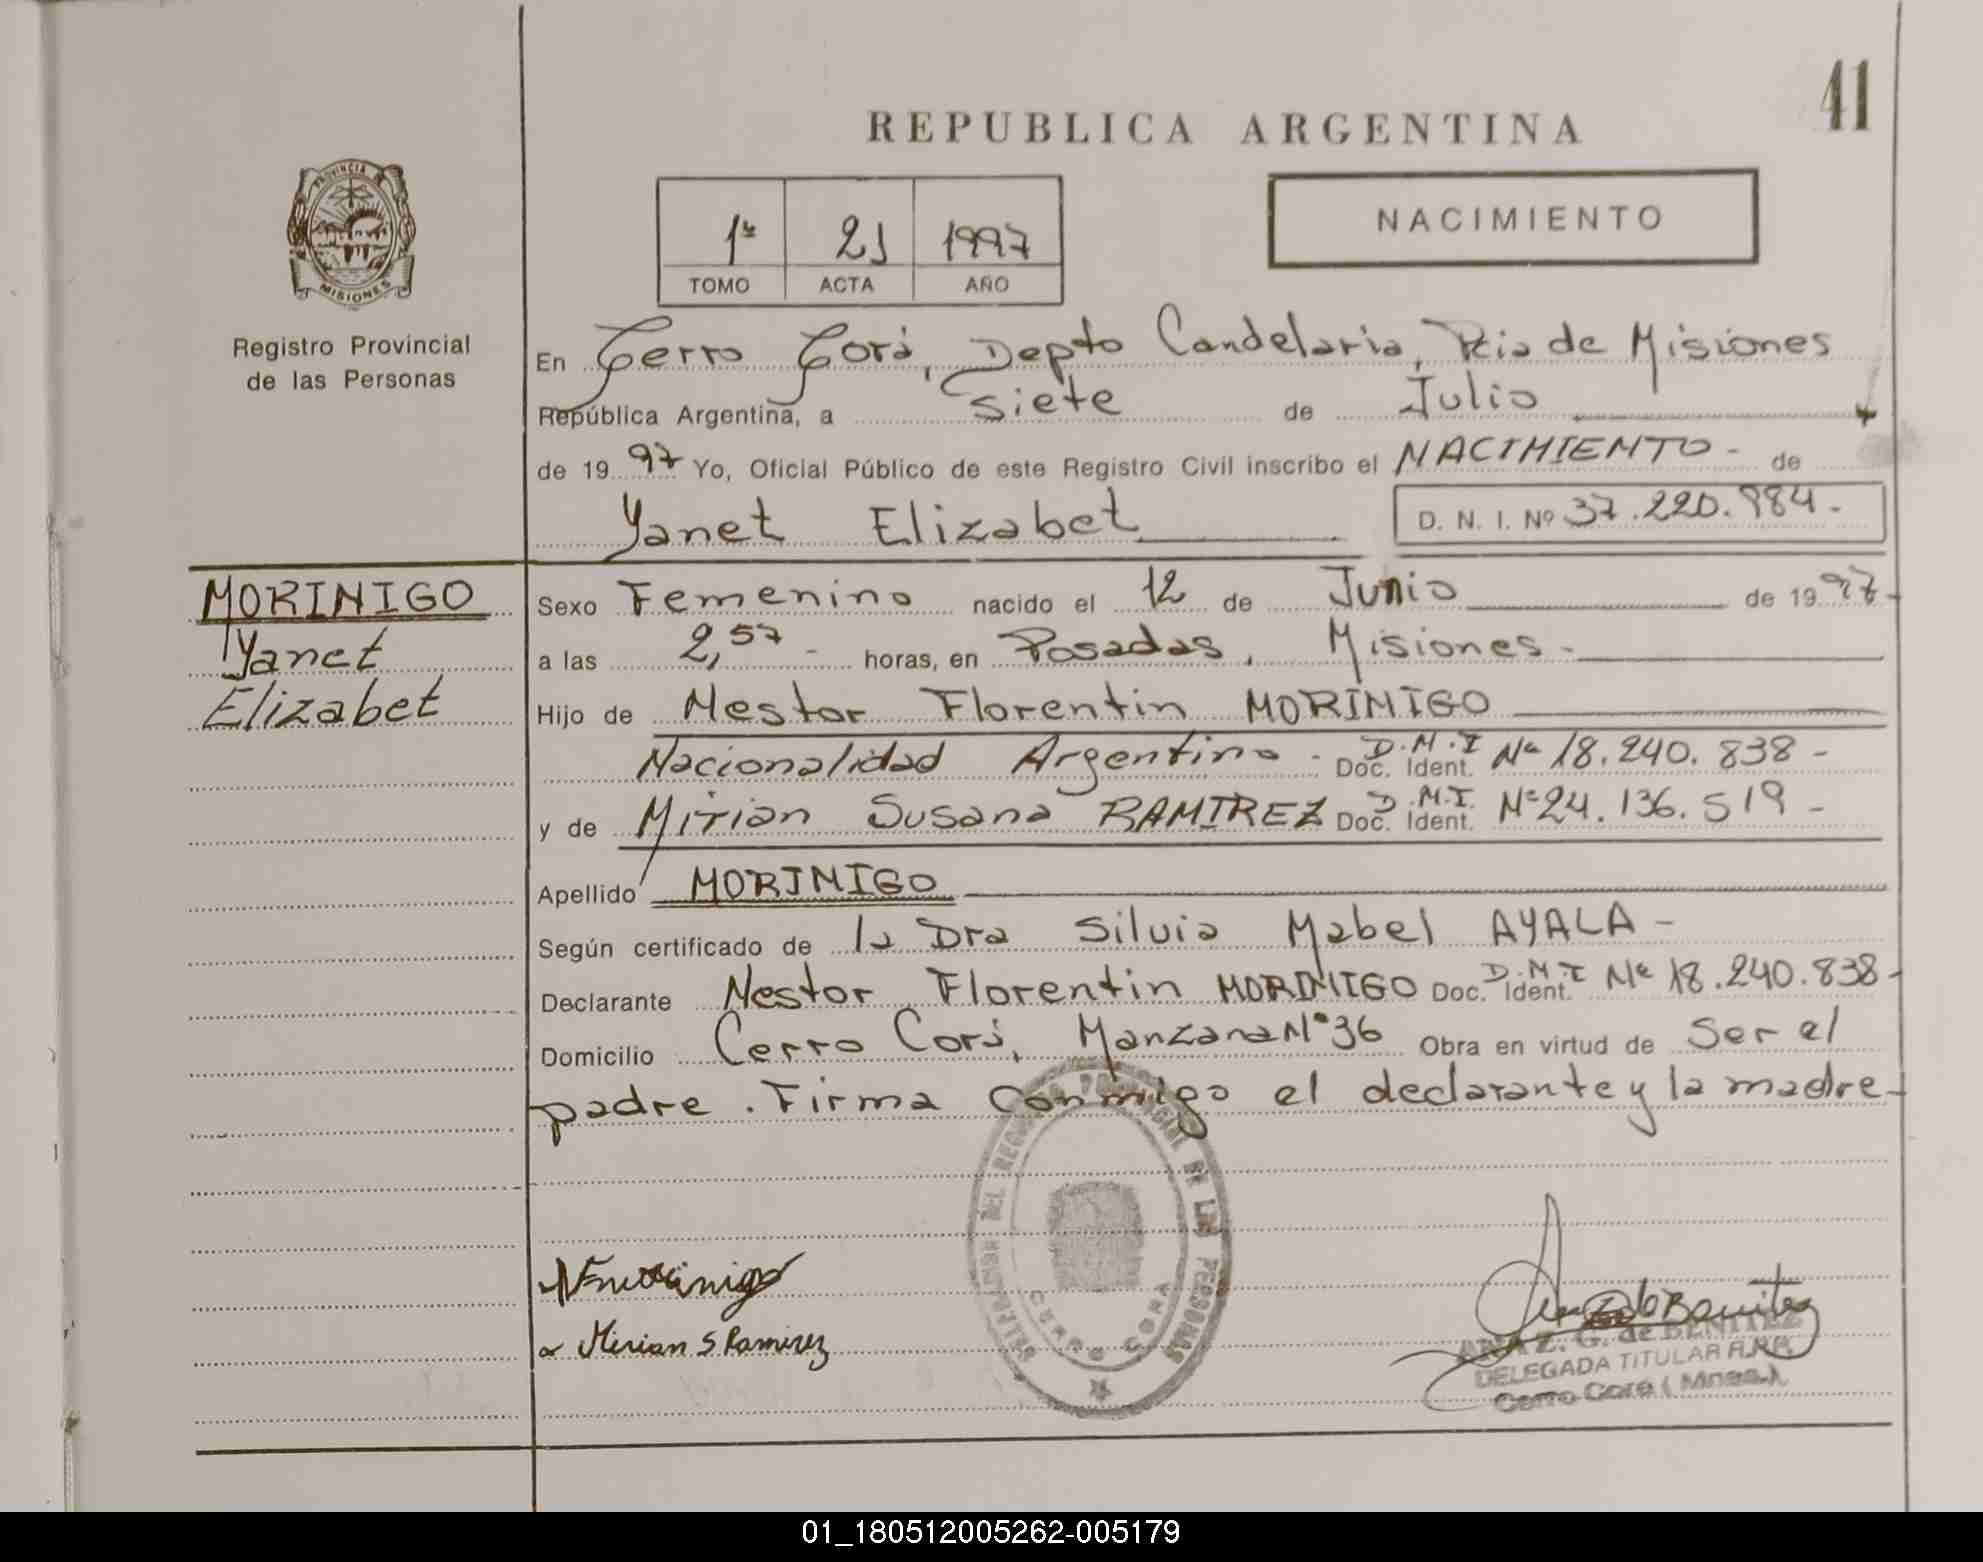 41
REPUBLICA ARGENTINA
PROVINCIA DE
MISIONES
NACIMIENTO
1º 21 1997
TOMO ACTA AÑO
Registro Provincial
de las Personas
En Cerro Corá, Depto Candelaria, Pcia de Misiones
República Argentina, a siete de Julio
de 19 97 Yo, Oficial Público de este Registro Civil inscribo el NACIMIENTO - de
Yanet Elizabet D. N. I. Nº 37.220.984.-
MORINIGO
Yanet
Elizabet
Sexo Femenino nacido el 12 de Junio de 19 97-
a las 2,57 - horas, en Posadas, Misiones.-
Hijo de Nestor Florentin MORINIGO
Nacionalidad Argentino - D.N.I Doc. Ident. Nº 18.240.838-
y de Mirian Susana RAMIREZ D.N.I. Doc. Ident. Nº 24.136.519-
Apellido MORINIGO
Según certificado de la Dra Silvia Mabel AYALA-
Declarante Nestor Florentin MORINIGO D.N.I Doc. Ident. Nº 18.240.838-
Domicilio Cerro Corá, Manzana Nº 36 Obra en virtud de Ser el
padre. Firma conmigo el declarante y la madre-
DELEGACION DEL REGISTRO PROVINCIAL DE LAS PERSONAS
CERRO CORA
Mirian S Ramirez
ANA Z. G. de BENITEZ
DELEGADA TITULAR R.P.P.
Cerro Corá (Mnes.)
01_180512005262-005179